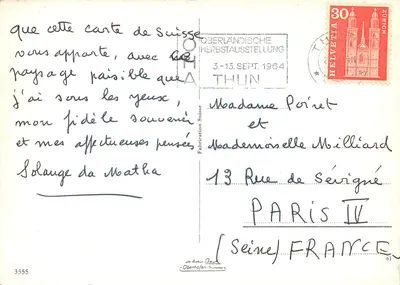 que cette carte de Suisse
vous apporte, avec le
paysage paisible que
j'ai sous les yeux,
mon fidèle souvenir
et mes affectueuses pensées
Solange da Matha
3555
OHA
OBERLÄNDISCHE
HERBSTAUSSTELLUNG
3.-13. SEPT. 1964
THUN
30
HELVETIA
ZÜRICH
Fabrication Suisse
Madame Poiret
et
Mademoiselle Milliard
13 Rue de Sévigné
PARIS IV
(Seine) FRANCE